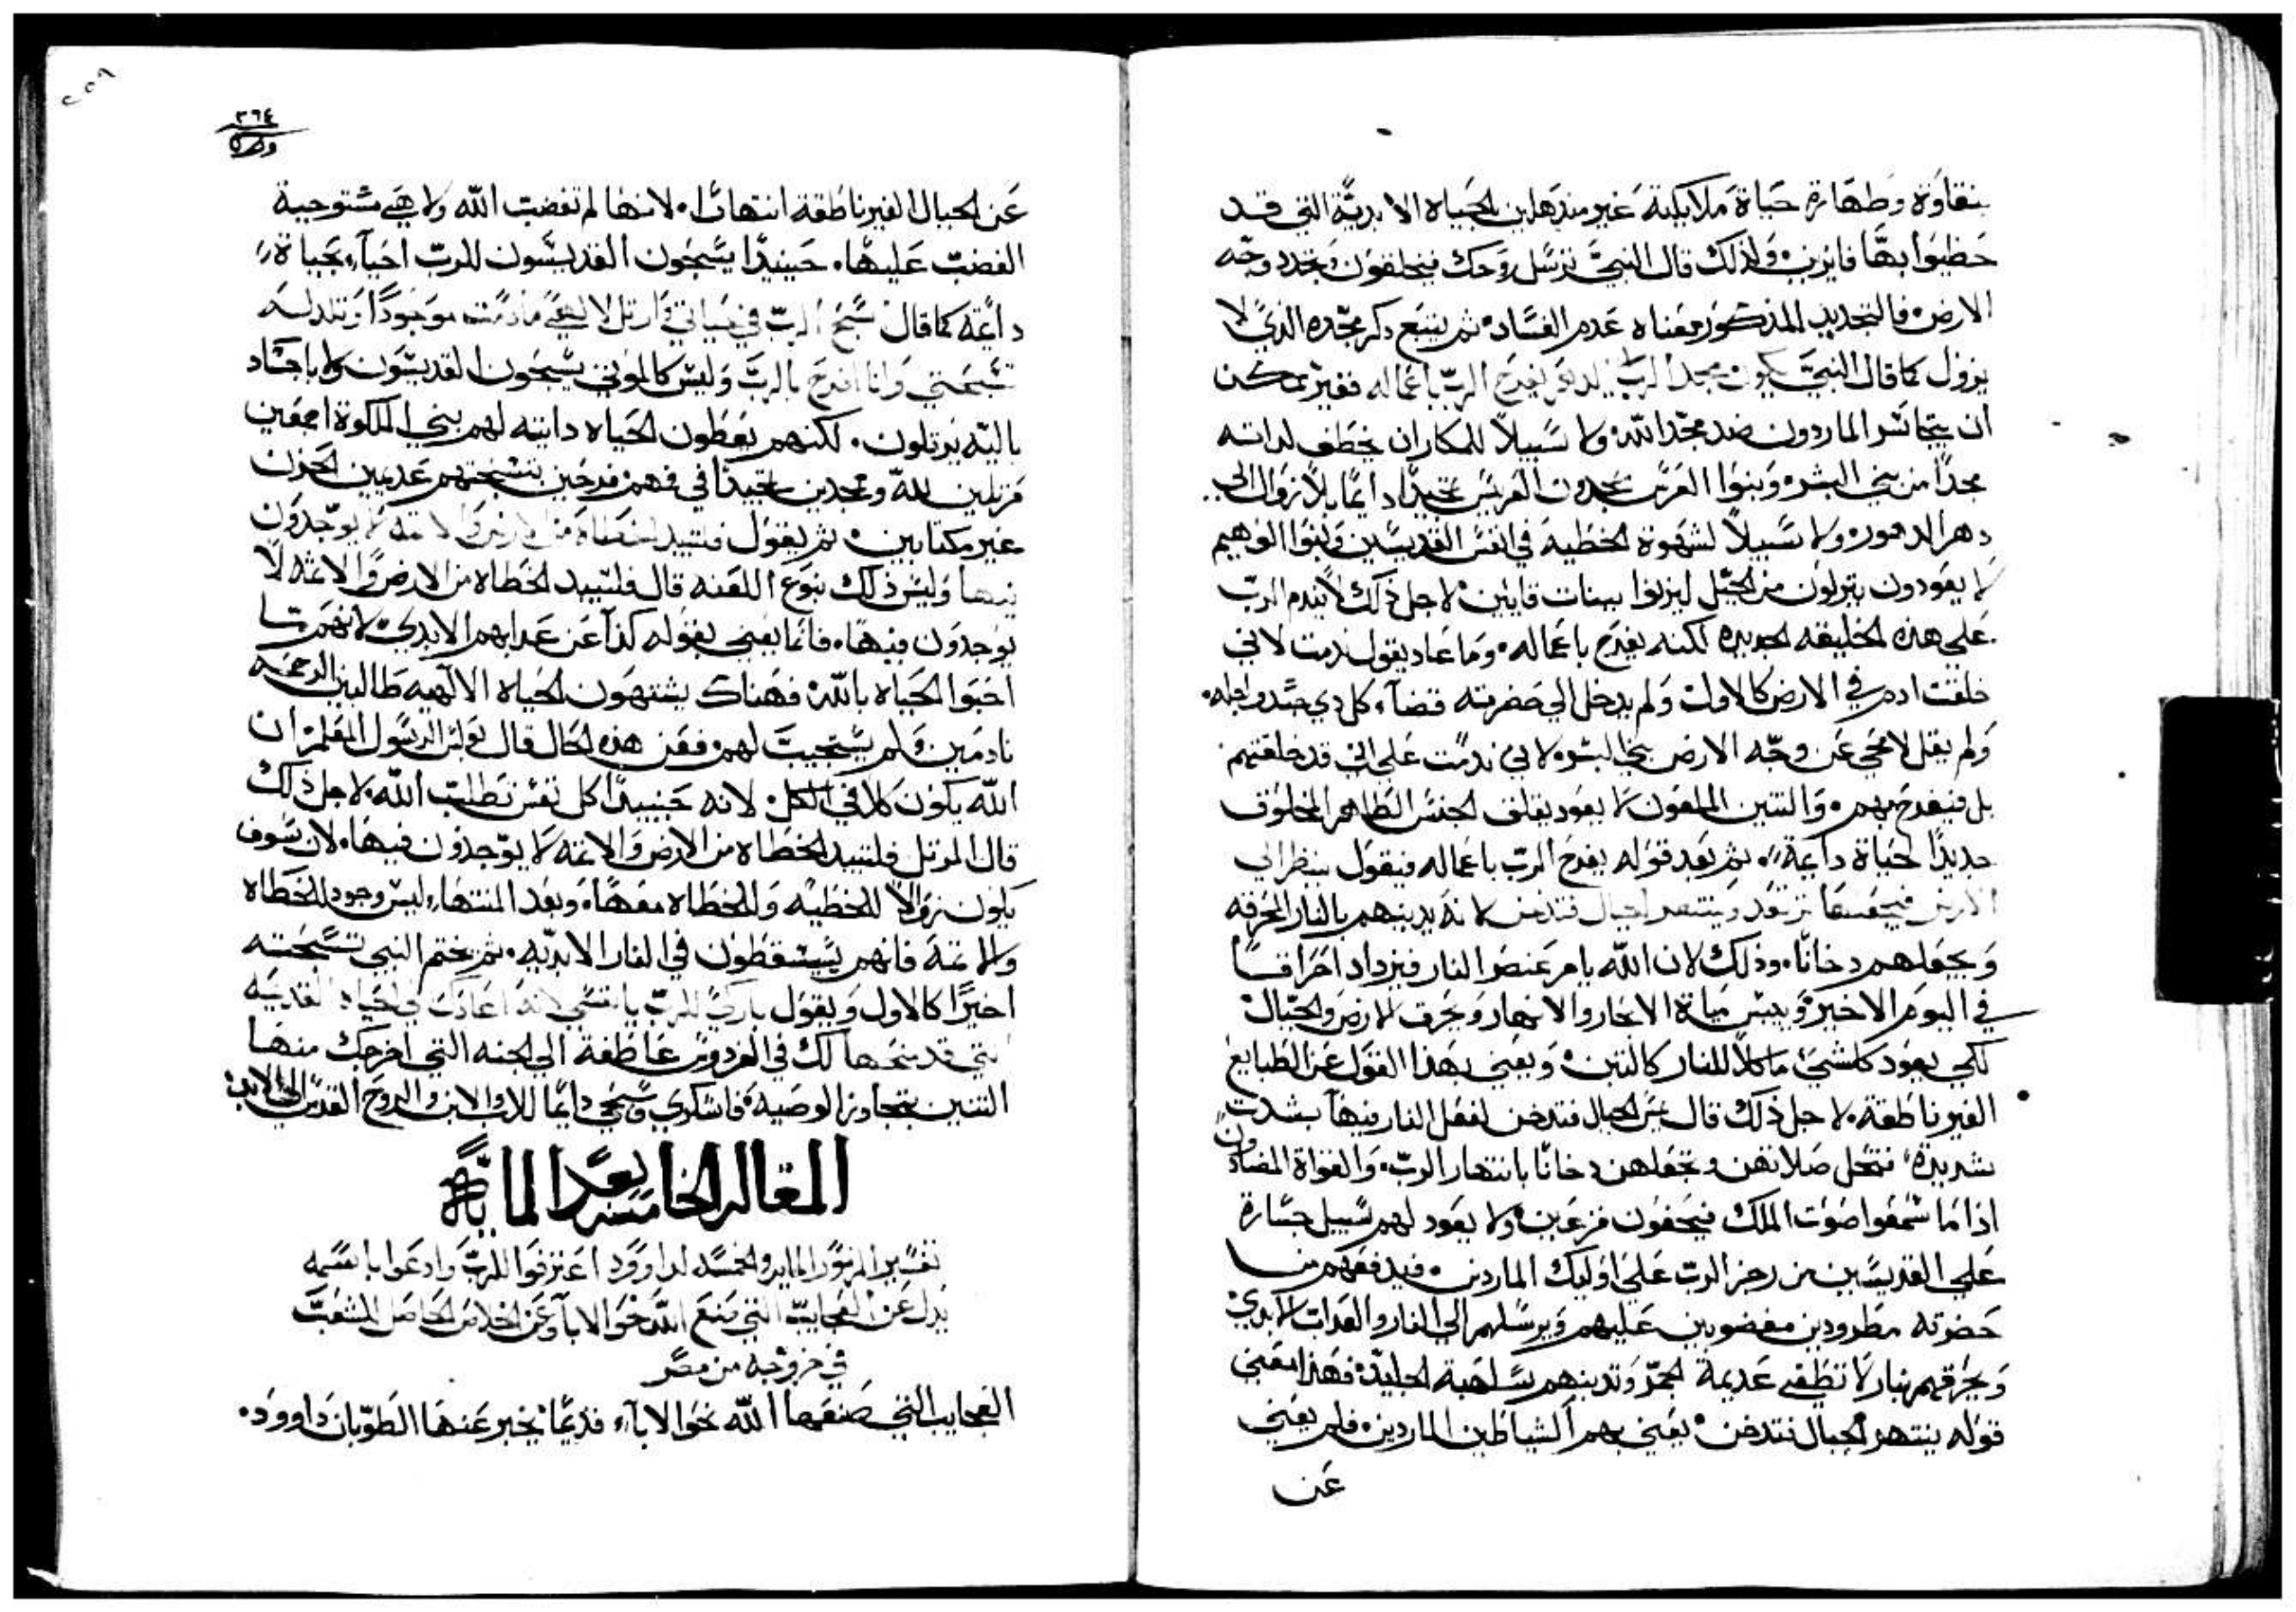 بنقاوة وطهارة حياة ملايكية غير منذهلين بالحياه الابديَّة التي قد
حظيوا بها فايزين ولذلك قال النبيَّ ترسل روحك فيخلقون وتجدد وجّه
الارض فالتجديد المذكور معناه عدم الفساد ثم يتبع ذكر مجّده الذي لا
يزول كما قال النبيَّ يكون مجد الربّ للدهر يفرح الربّ باعماله فغير ممكن
ان يتجاسر الماردون ضد مجّد الله ولا سَبيلاً للمكاران يخطف لداته
مجدًا من بني البشر وبنوا العريس يمجدون العريس تمجيدًا دايمًا بلا زوال الي
دهر الدهور ولا سَبيلاً لشهوة الخطية في انفس القديسَين وبنوا الوهيم
لا يعودون ينزلون من الجَبل ليزنوا ببنات قايين لاجل ذلك لا يندم الربّ
علي هذه الخليقه الجديده لكنه يفرح باعماله وما عاد يقول ندمت لاني
خلقت ادم في الارض كالاول ولم يدخل الي حضرته قضآء كل ذي جسَد واجله
ولم يقل لامحي عن وجّه الارض بني البشر لاني ندمت علي اني قد خلقتهم
بل فيفرح بهم والتنين الملعون لا يعود يقلق الجنس الطاهر المخلوق
جديدًا لحياة دايمة ثم بعد قوله يفرح الربّ باعماله فيقول ينظر الي
الارض فيجعلها ترتعد وينتهر الجبال فتدخن لانه يدينهم بالنار المحرقه
ويجعلهم دخانًا وذلك لان الله يامر عنصر النار فيزداد احراقًا
في اليوم الاخير وييبس مياة الابحار والانهار ويحرق الارض والجبال
لكي يعود كلشي ماكلاً للنار كالتبن ويعني بهذا القول عن الطبايع
الغير ناطقة لاجل ذلك قال عن الجبال فتدخن لفعل النار فيها بشدت
شديدة فتحل صلابتهن وتجعلهن دخانًا بانتهار الربّ والغواة المضادون
اذا ما سمعوا صوت الملك فيخفون فزعين ولا يعود لهم سبيل جسارة
علي القديسَين من رجز الربّ علي اوليك الماردين فيدفعهم من
حضرته مطرودين مغضوبين عليهم ويرسَلهم الي النار والعذاب الابدي
ويحرقهم بنار لا تطفي عديمة الجمر وتدينهم سلهبة الجليد فهذا معني
قوله ينتهر الجبال فتدخن يعني بهم الشياطين الماردين فلم يعني
عن
٢٥٨
٣٦٤
عن الجبال الغير ناطقة انتهارًا لانها لم تغضب الله ولا هي مستوجبة
الغضب عليها حينيذًا يسَبحون القديسَون للربّ احيآء بحياة
دايمة كما قال سَبح الربّ في حياتي وارتل لالهي ما دمت موجودًا وتلذ له
تسبحتي وانا افرح بالربّ وليس كالموتي يسبحون القديسَون ولا باجسَاد
باليه يرتلون لكنهم يعطون الحياه داينيه لهم بني الملكوة اجمعين
مرتلين لله وممجدين تمجيدًا في فهم فرحين بتسَبحتهم عديمين الحزن
غير مكتابين ثم يقول فلتبيد الخطاة من الارض والاثمه لا يوّجدون
فيها وليس ذلك بنوع اللعنه قال فلتبيد الخطاه من الارض والاثمه لا
يوجدون فيها فانما يعني بقوله كذا عن عدابهم الابدي لانهم متا
احبوا الحياه بالله فهناك يشتهون الحياه الالهيه طالبين الرحمه
نادمين ولم يسَتجيب لهم فعن هذه الحال قال بولس الرسول المعلم ان
الله يكون كلا في الكل لانه حينيذًا كل نفس تطلب الله لاجل ذلك
قال المرتل فلتبيد الخطاه من الارض والاثمه لا يوّجدون فيها لان سَوف
يكون زوالا للخطيه وللخطاه معها وبعد المنتها ليس وجود للخطاه
والاثمة فانهم يسَتسقطون في النار الابديه ثم يختم النبي تسَبحته
اخيرًا كالاول ويقول باركي للربّ يا نفسَي لانه اعادك في الحياه القديمه
التي قد منحها لك في الفردوس عاطفة الي الجنه التي اخرجك منها
التنين بتجاوز الوصيه فاشكري وسَبحي دايمًا للاب والابن والروح القدس الي الابد
المقاله الخامسَه بعد المايَّه
تفسَير المزمور المايه والخمسَه لداوود اعترفوا للربّ وادعوا باسمه
يدل عن العجايب التي صنع الله نحو الابآ وعن الخلاص الحاصل للشعب
في خروجه من مصر
العجايب التي صنعها الله نحو الابآء قديمًا يخبر عنها الطوبان داوود